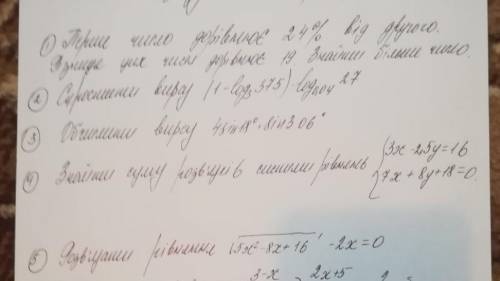 ① Перше число дорівнює 24% від другого.
Різниця цих чисел дорівнює 19 Знайти більше число.
② Спростити вираз (1-log₃375)·log₀,₀₄27
③ Обчислити вираз 4sin18°·sin306°
④ Знайти суму розв'язків системи рівнянь { 3x-2,5y=16
7x+8y+18=0
⑤ Розв'язати рівняння √5x²-8x+16 -2x=0
3-x 2x+5